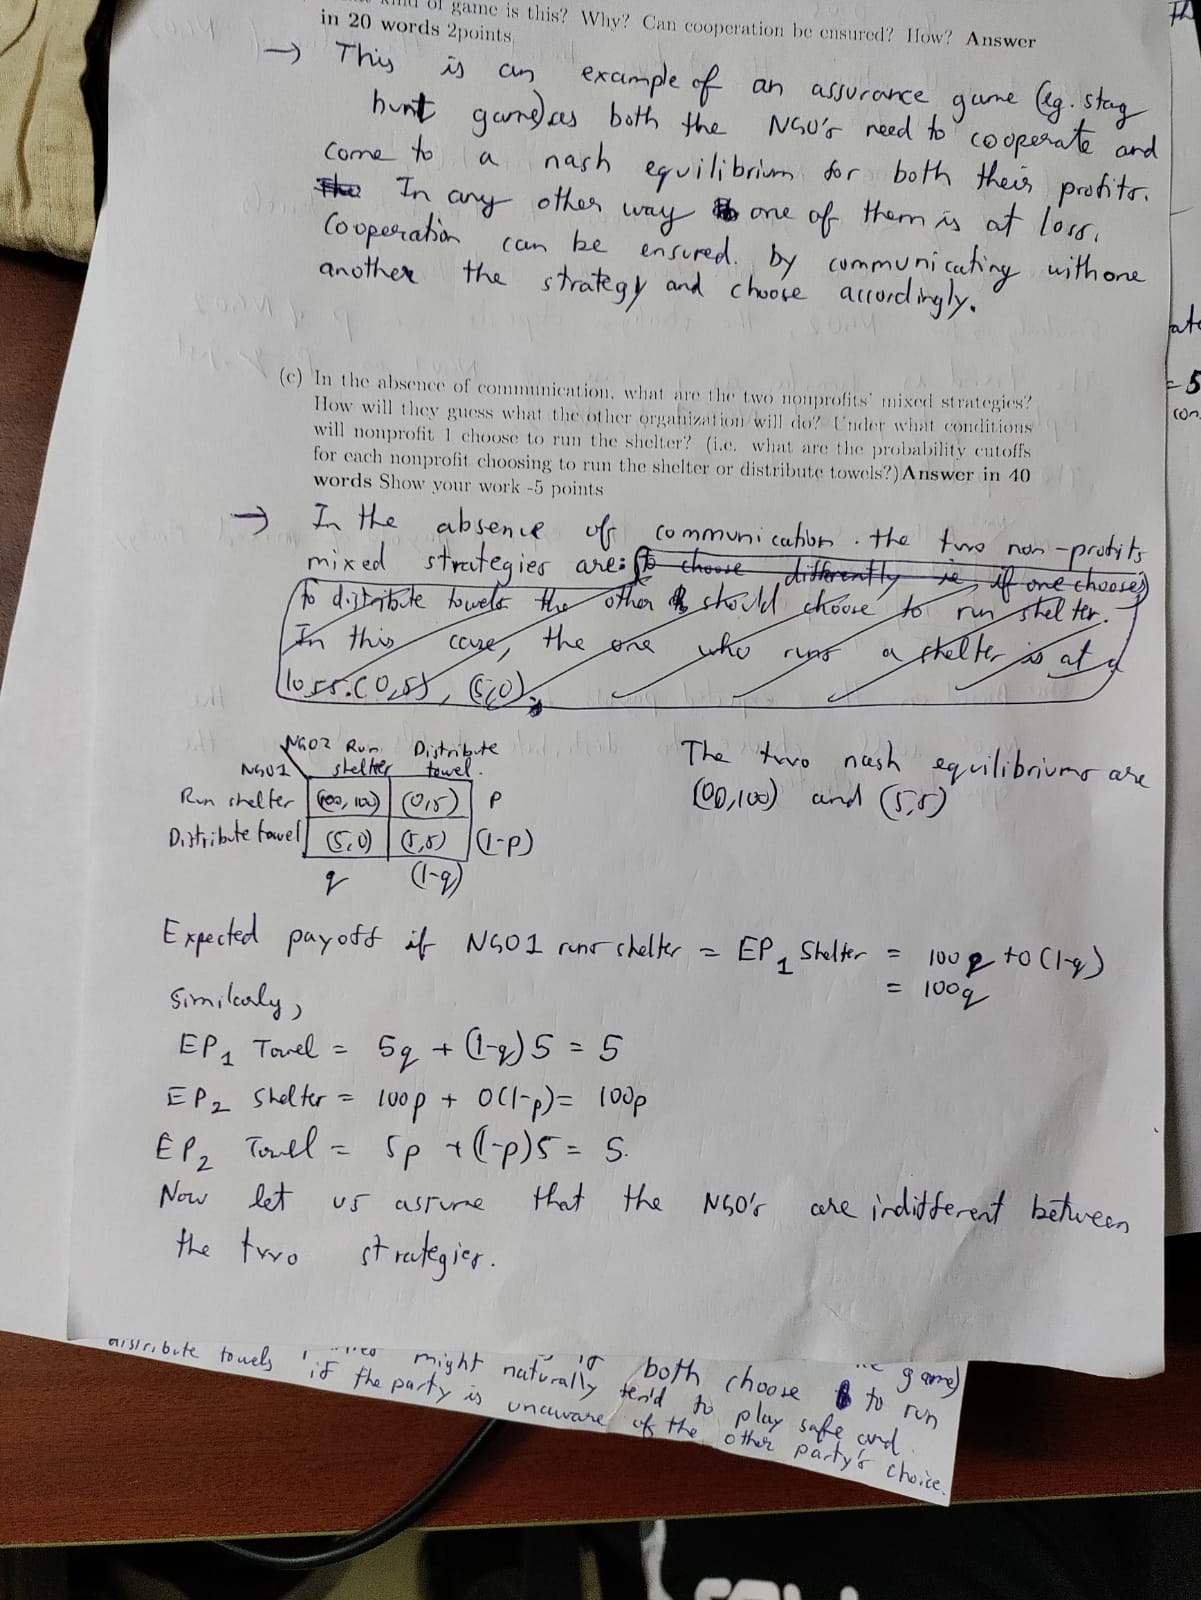 kind of game is this? Why? Can cooperation be ensured? How? Answer
in 20 words 2points
→ This is an example of an assurance game (eg. stag
hunt game) as both the NGO's need to cooperate and
come to a nash equilibrium for both their profits.
In any other way one of them is at loss.
Cooperation can be ensured. by communicating with one
another the strategy and choose accordingly.
(c) In the absence of communication, what are the two nonprofits' mixed strategies?
How will they guess what the other organization will do? Under what conditions
will nonprofit 1 choose to run the shelter? (i.e. what are the probability cutoffs
for each nonprofit choosing to run the shelter or distribute towels?)Answer in 40
words Show your work -5 points
→ In the absence of communication. the two non-profits
mixed strategies are: to choose differently ie, if one chooses
to distribute towels the other should choose to run shelter.
In this case, the one who runs a shelter is at a
loss. (0,5), (5,0).
NGO2 Run Distribute
NGO1 shelter towel.
Run shelter (100, 100) (0,5) P
Distribute towel (5,0) (5,5) (1-P)
q (1-q)
The two nash equilibriums are
(100,100) and (5,5)
Expected payoff if NGO1 runs shelter = EP1 Shelter = 100q +0(1-q)
= 100q
Similarly,
EP1 Towel = 5q + (1-q)5 = 5
EP2 Shelter = 100p + 0(1-p)= 100p
EP2 Towel = 5p + (1-p)5 = 5.
Now let us assume that the NGO's are indifferent between
the two strategies.
game)
might naturally tend to play safe and
both choose to run
distribute towels if the party is unaware of the other party's choice.
ate
= 5
con